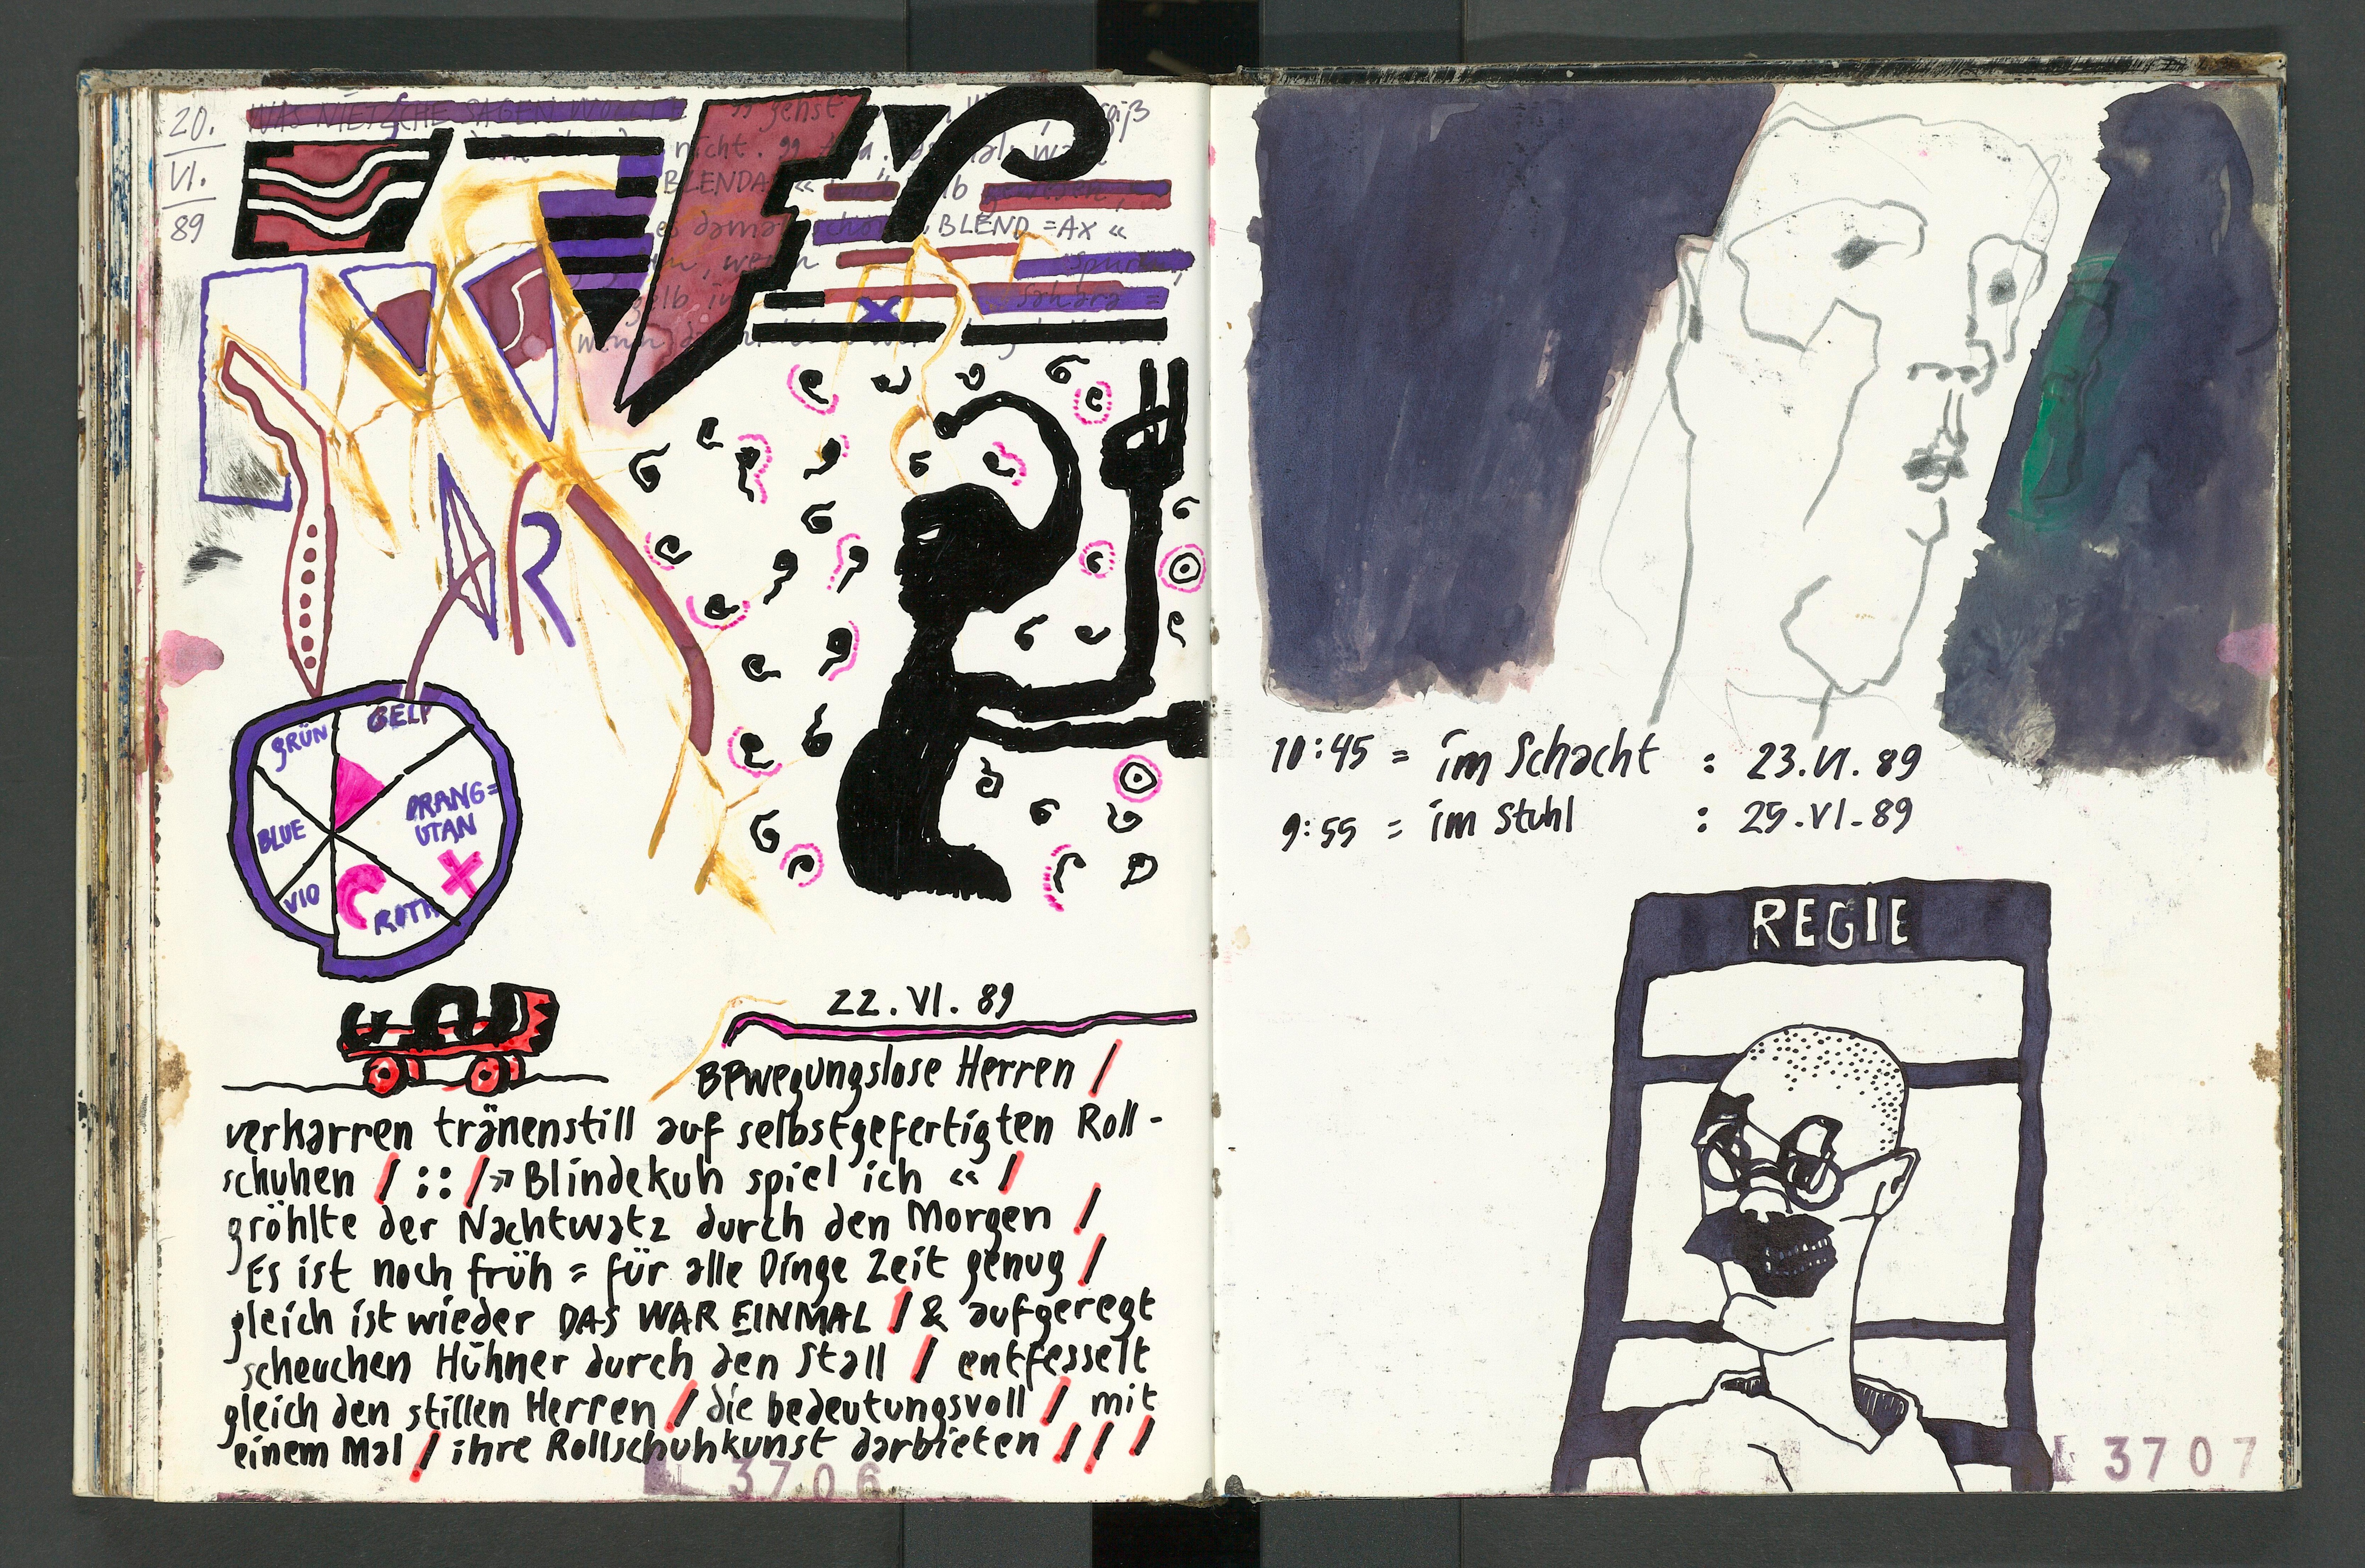 20.
VI.
89
WAS NIETZSCHE SAGEN WOLLTE
gehst
nicht.
BLENDAX «
BLEND = AX «
wenn
spürt
gelb
Sahara =
wenn
GRÜN
GELP
ORANG=
UTAN
BLUE
VIO
ROTH
22. VI. 89
Bewegungslose Herren /
verkarren tränenstill auf selbstgefertigten Roll-
schuhen / :: / » Blindekuh spiel ich « /
gröhlte der Nachtwatz durch den Morgen /
Es ist noch früh = für alle Dinge Zeit genug /
gleich ist wieder DAS WAR EINMAL / & aufgeregt
scheuchen Hühner durch den Stall / entfesselt
gleich den stillen Herren / die bedeutungsvoll / mit
einem Mal / ihre Rollschuhkunst darbieten / / /
3706
10:45 = im Schacht : 23.VI.89
9:55 = im Stuhl : 25.VI.89
REGIE
3707